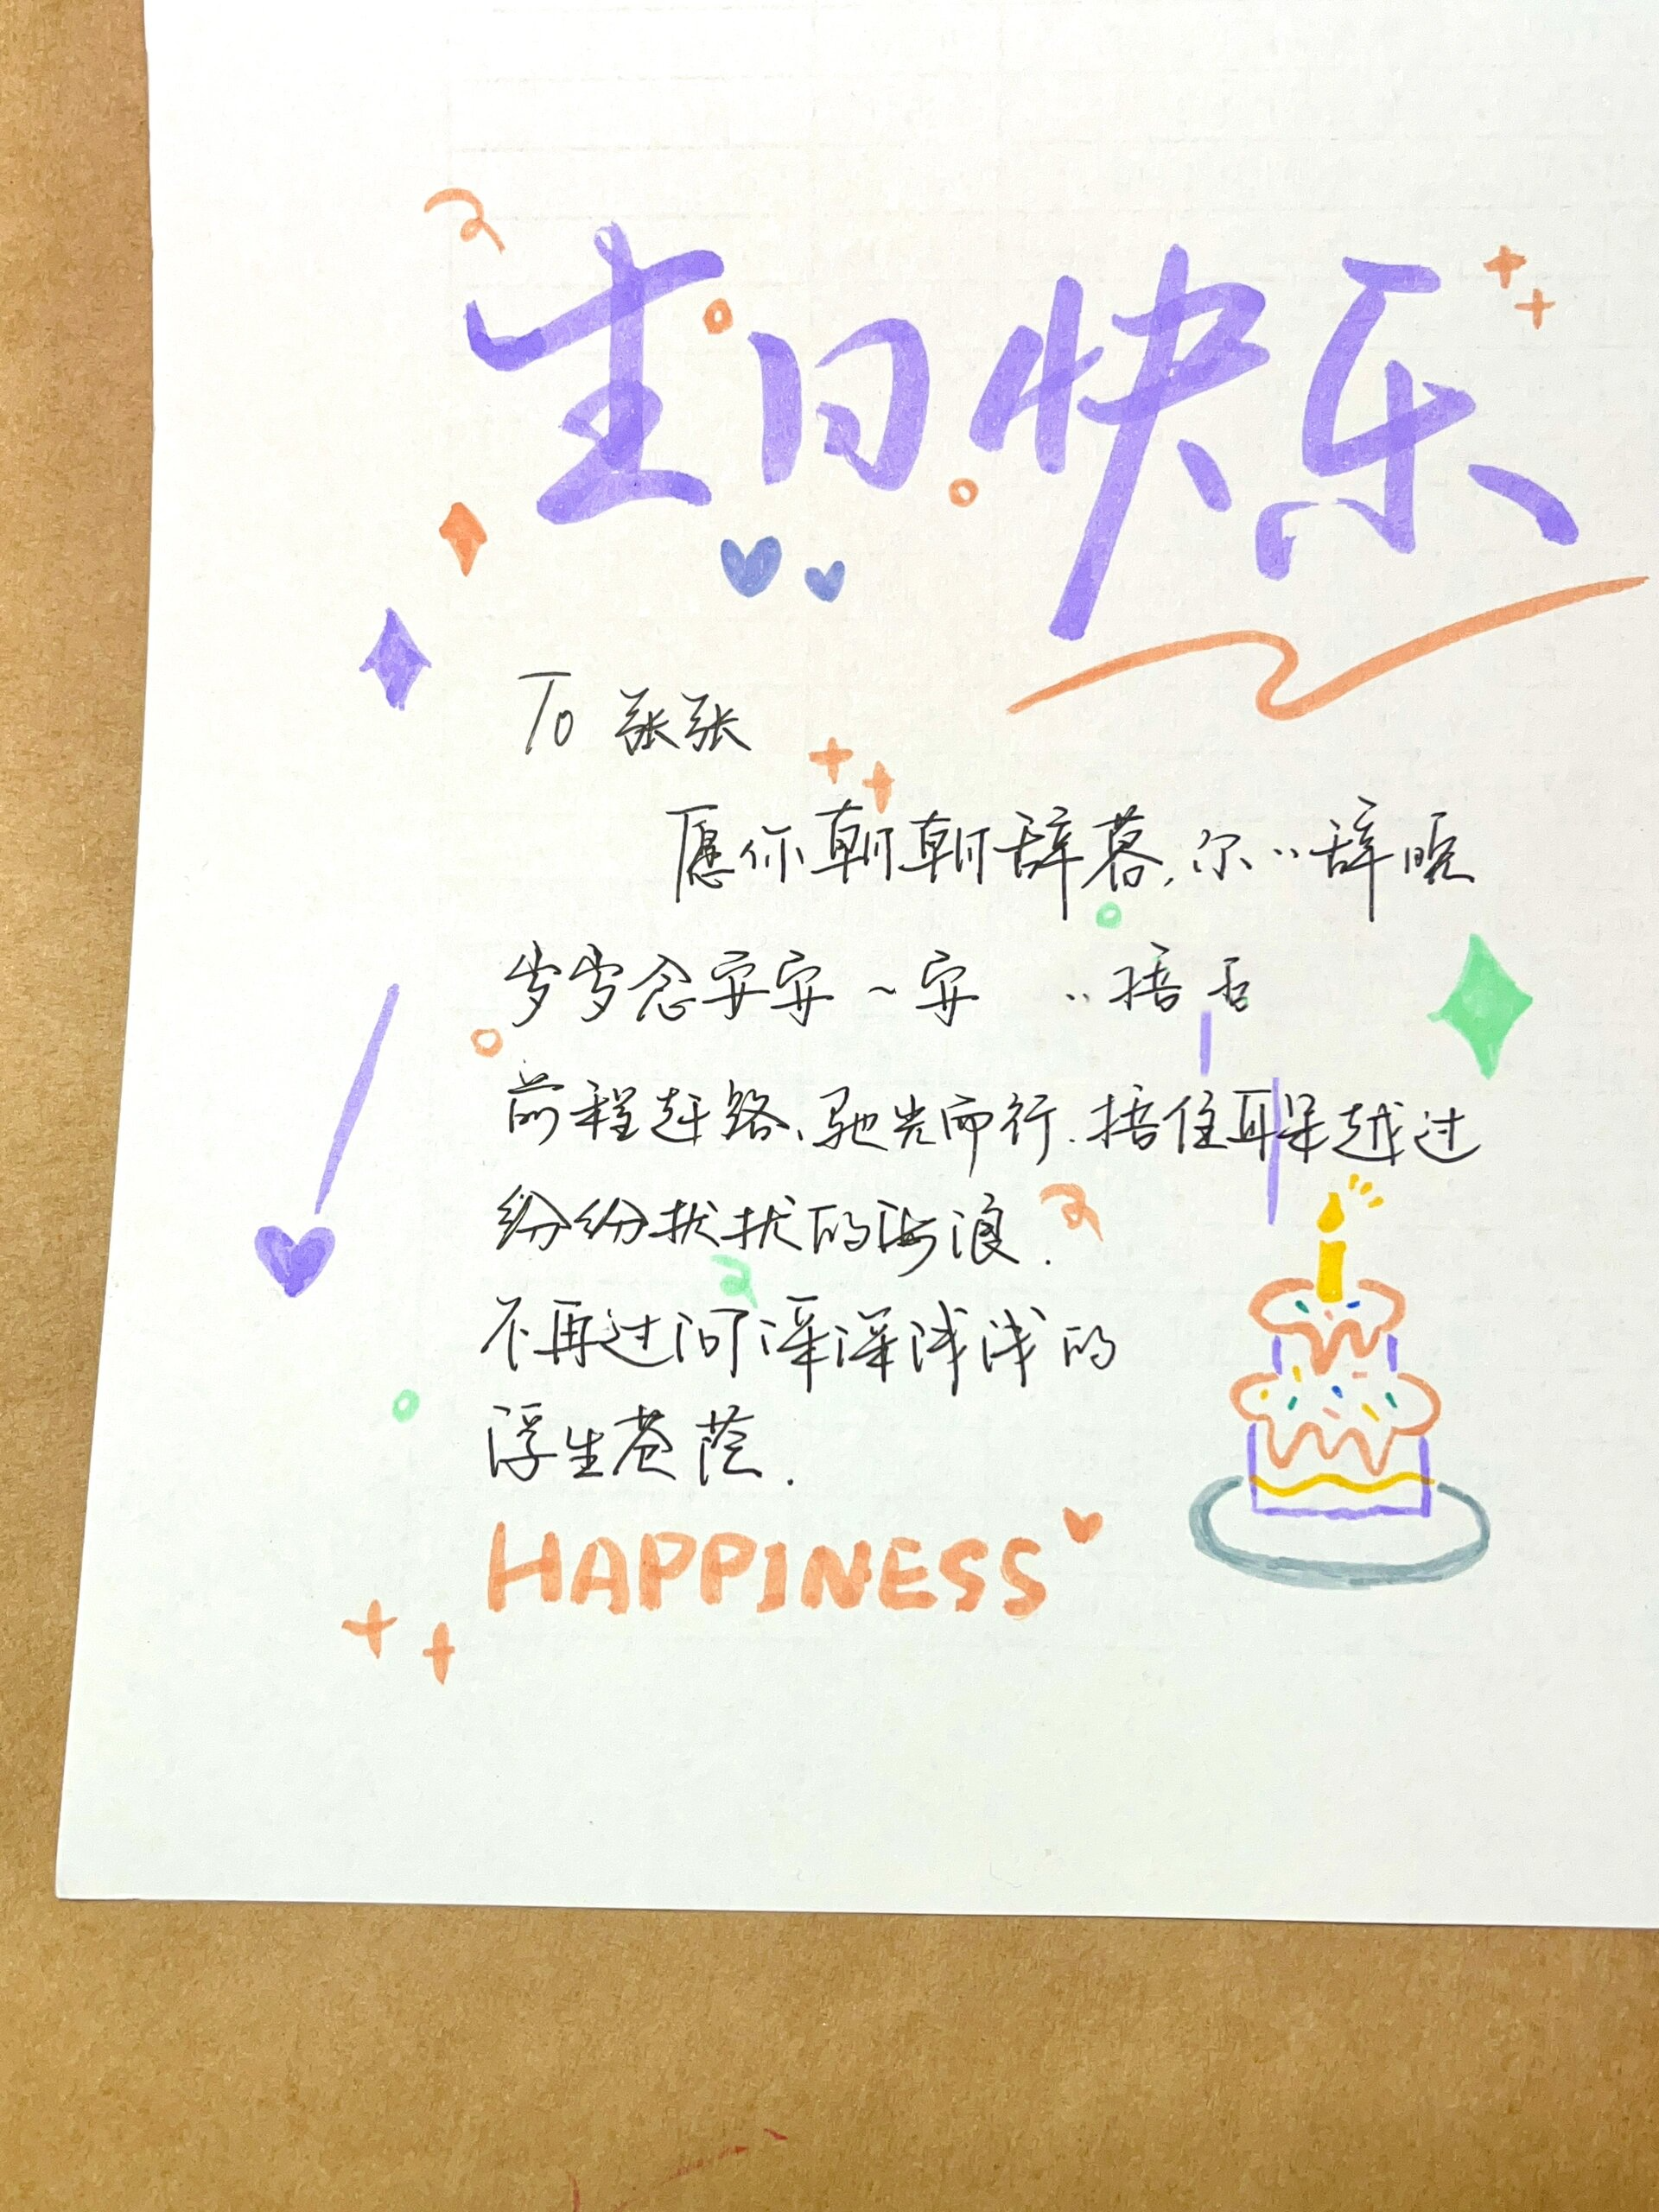 生日快乐
To 张张
愿你朝朝辞暮,尔‥辞晚
岁岁念安安~安 ‥捂否
前程赶路、驰光而行.捂住耳朵越过
纷纷扰扰的海浪.
不再过问深深浅浅的
浮生苍荫.
HAPPINESS